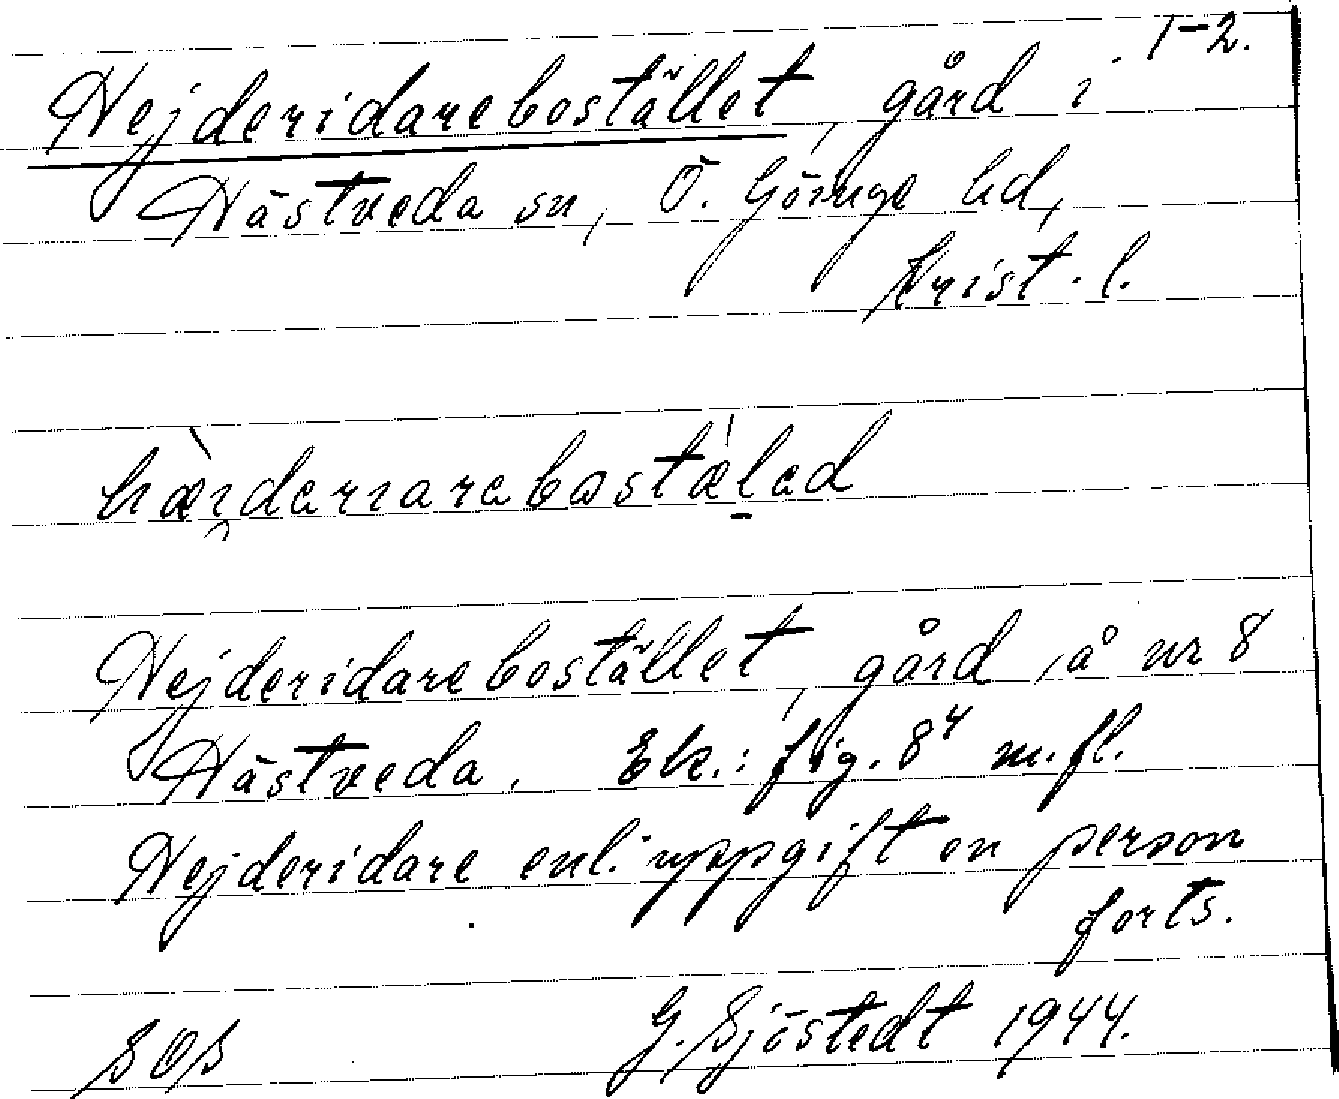 1-2.
Hejderidarebostället, gård i
Hästveda sn, Ö. Göinge hd,
Krist. l.
hæ̀i̯darıarabostǽlad
Hejderidarebostället, gård å nr 8
Hästveda. Ek.: fig. 8⁴ m.fl.
Hejderidare enl. uppgift en person
forts.
SOS G. Sjöstedt 1944.